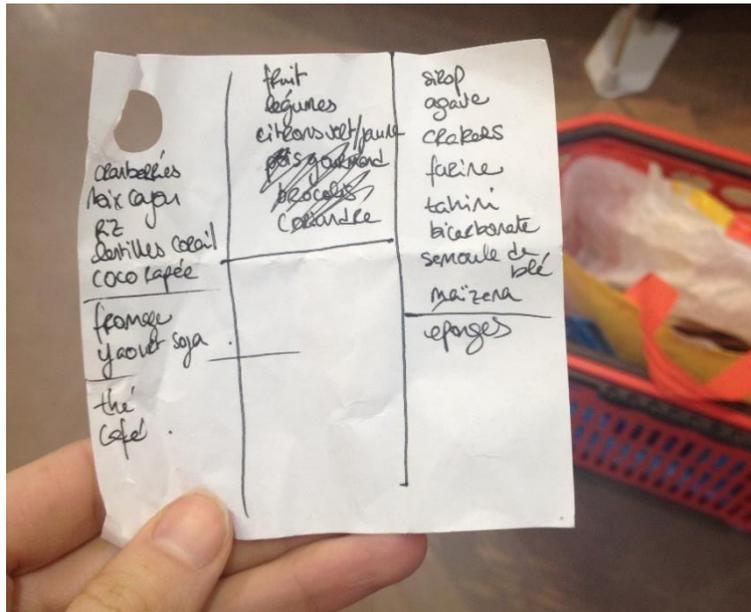 cranberries
Noix cajou
RZ
lentilles corail
coco rapée
fromage
yaourt soja
thé
café
fruit
légumes
citrons vert/jaune
pois gourmand
brocolis
coriandre
sirop
agave
crakers
farine
tahini
bicarbonate
semoule de
blé
maïzena
éponges